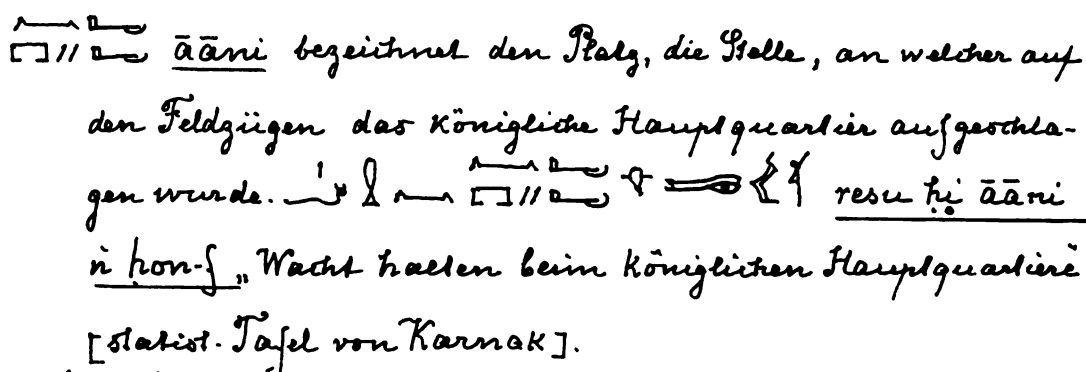 āāni bezeichnet den Platz, die Stelle, an welcher auf
den Feldzügen das königliche Hauptquartier aufgeschla-
gen wurde. resu ḥi āāni
ṅ ḥon-f „Wacht halten beim königlichen Hauptquartiere“
[statist. Tafel von Karnak].